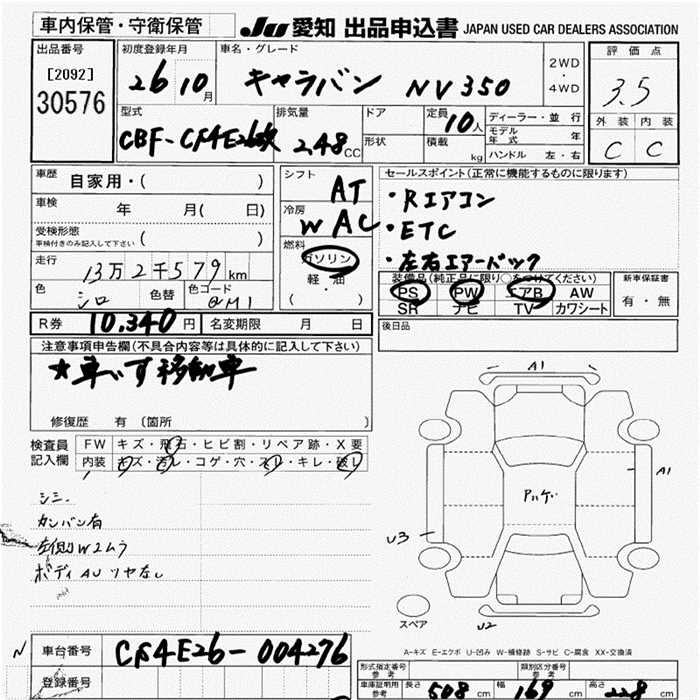 車内保管・守衛保管
JU 愛知 出品申込書 JAPAN USED CAR DEALERS ASSOCIATION
出品番号
[2092]
30576
初度登録年月
26 10月
車名・グレード
キャラバン NV350
2WD
・
4WD
評価点
3.5
外装 内装
C C
型式
CBF-CS4E26改
排気量
2.48CC
ドア
形状
定員
10人
積載 kg
ディーラー・並行
モデル年式 年
ハンドル 左・右
車歴 自家用・( )
車検 年 月( 日)
受検形態
車検付きのみ記入して下さい ( )
走行 13万2千579km
色 シロ 色替 色コード @M1
シフト AT
冷房 WAC
燃料
ガソリン
・
軽・油
( )
セールスポイント(正常に機能するものに限ります)
・Rエアコン
・ETC
・左右エアーバック
装備品(純正品に限り○をつけてください)
PS PW エアB AW
SR ナビ TV カワシート
新車保証書
有・無
R券 10,340円 名変期限 月 日
後日品
注意事項申告欄(不具合内容等は具体的に記入して下さい)
★車いす移動車
修復歴 有 〔箇所 〕
検査員記入欄
FW キズ・飛石・ヒビ割・リペア跡・X要
内装 キズ・汚レ・コゲ・穴・スレ・キレ・破レ
シミ.
カンバン有
左側W2ムラ
ボディAUツヤなし
A1
A1
U3
U2
スペア
A-キズ E-エクボ U-凹み W-補修跡 S-サビ C-腐食 XX-交換済
N 車台番号 CS4E26-004276
登録番号
形式指定番号 参考
類別区分番号 参考
車庫証明用参考 長さ 508cm 幅 169cm 高さ 228cm